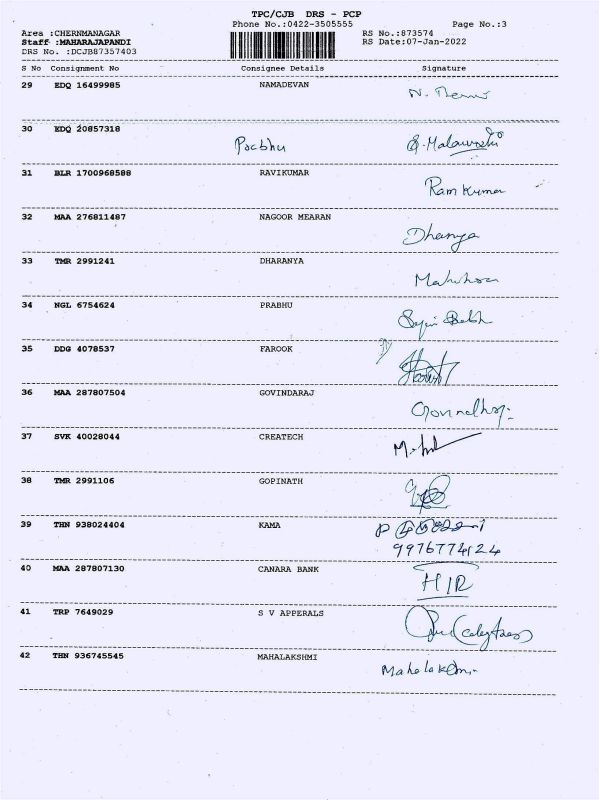 TPC/CJB DRS - PCP
Phone No.:0422-3505555 Page No.:3
Area :CHERNMANAGAR RS No.:873574
Staff :MAHARAJAPANDI RS Date:07-Jan-2022
DRS No. :DCJB87357403
S No Consignment No Consignee Details Signature
29 EDQ 16499985 NAMADEVAN
30 EDQ 20857318
Prabhu
31 BLR 1700968588 RAVIKUMAR
Ram Kumar
32 MAA 276811487 NAGOOR MEARAN
Dhanya
33 TMR 2991241 DHARANYA
34 NGL 6754624 PRABHU
35 DDG 4078537 FAROOK
36 MAA 287807504 GOVINDARAJ
37 SVK 40028044 CREATECH
38 TMR 2991106 GOPINATH
39 THN 938024404 KAMA
9976774124
40 MAA 287807130 CANARA BANK
41 TRP 7649029 S V APPERALS
42 THN 936745545 MAHALAKSHMI